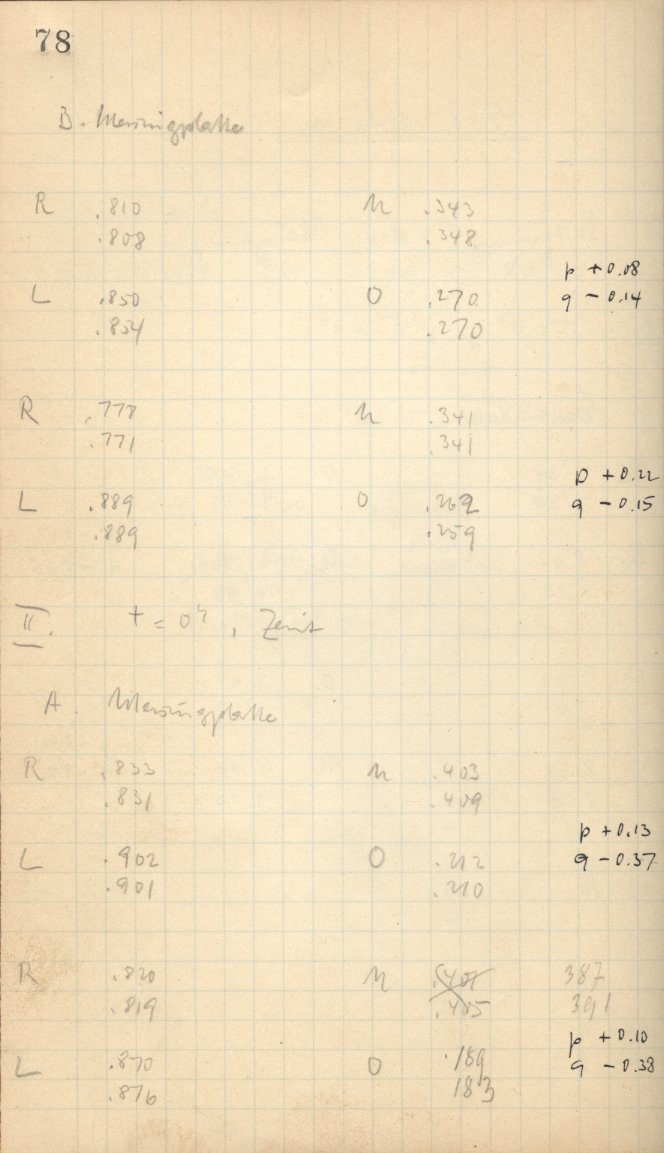 78
B. Messingplatte
R .810 U .343
.808 .348
p +0.08
L .850 O .270 q -0.14
.854 .270
R .778 U .341
.771 .341
p +0.22
L .889 O .262 q -0.15
.889 .259
II. t = 0h, Zenit
A. Messingplatte
R .833 U .403
.831 .409
p +0.13
L .902 O .212 q -0.37
.901 .210
R .820 U .401 387
.819 .405 391
p +0.10
L .870 O .189 q -0.38
.876 183